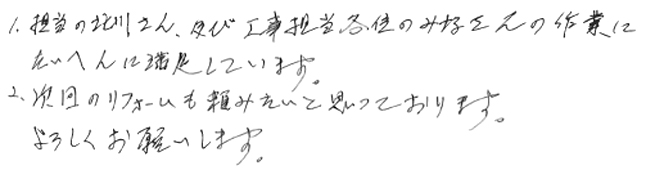 1. 担当の北川さん、及び工事担当各位のみなさんの作業に
たいへんに満足しています。
2、次回のリフォームも頼みたいと思っております。
よろしくお願いします。